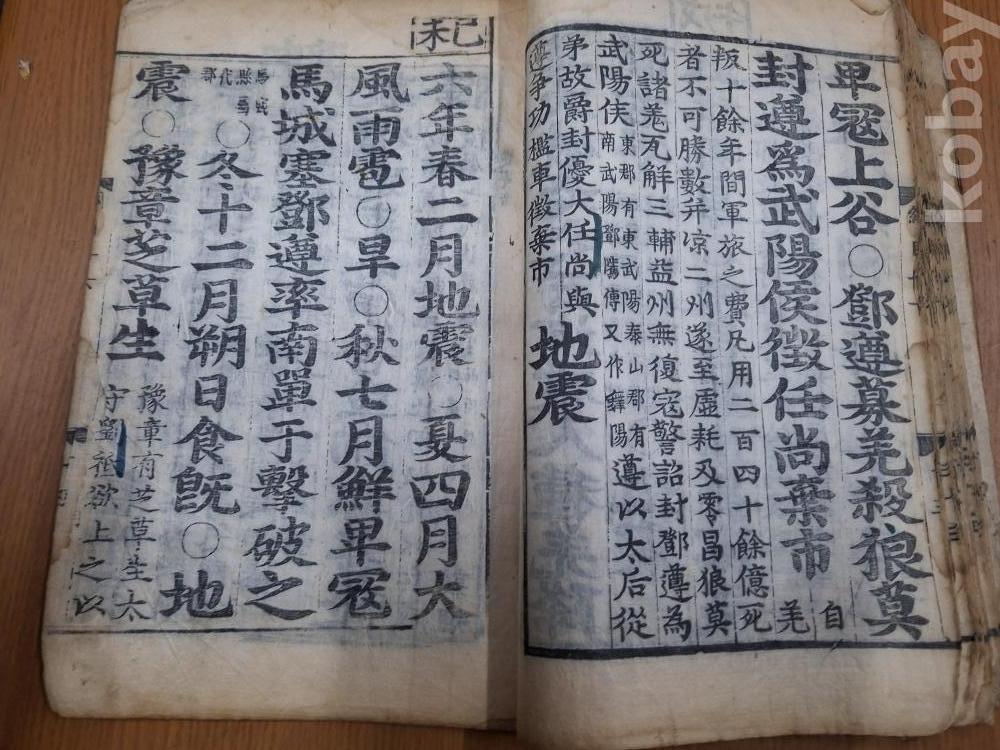 卑寇上谷〇鄧遵募羌殺狼莫
封遵爲武陽侯徵任尚棄市
自羌
叛十餘年間軍旅之費凡用二百四十餘億死
者不可勝數并凉二州遂至虛耗及零昌狼莫
死諸羌瓦解三輔益州無復寇警詔封鄧遵為
武陽侯
東郡有東武陽泰山郡有
南武陽鄧隲傳又作陽
遵以太后從
弟故爵封優大任尚與
遵爭功檻車徵棄市
地震
己未
六年春二月地震〇夏四月大
風雨雹〇旱〇秋七月鮮卑寇
馬城塞鄧遵率南單于擊破之
馬城
縣屬
代
郡
〇冬十二月朔日食旣〇地
震〇豫章芝草生
豫章有芝草生太
守劉祗欲上之以
kobay